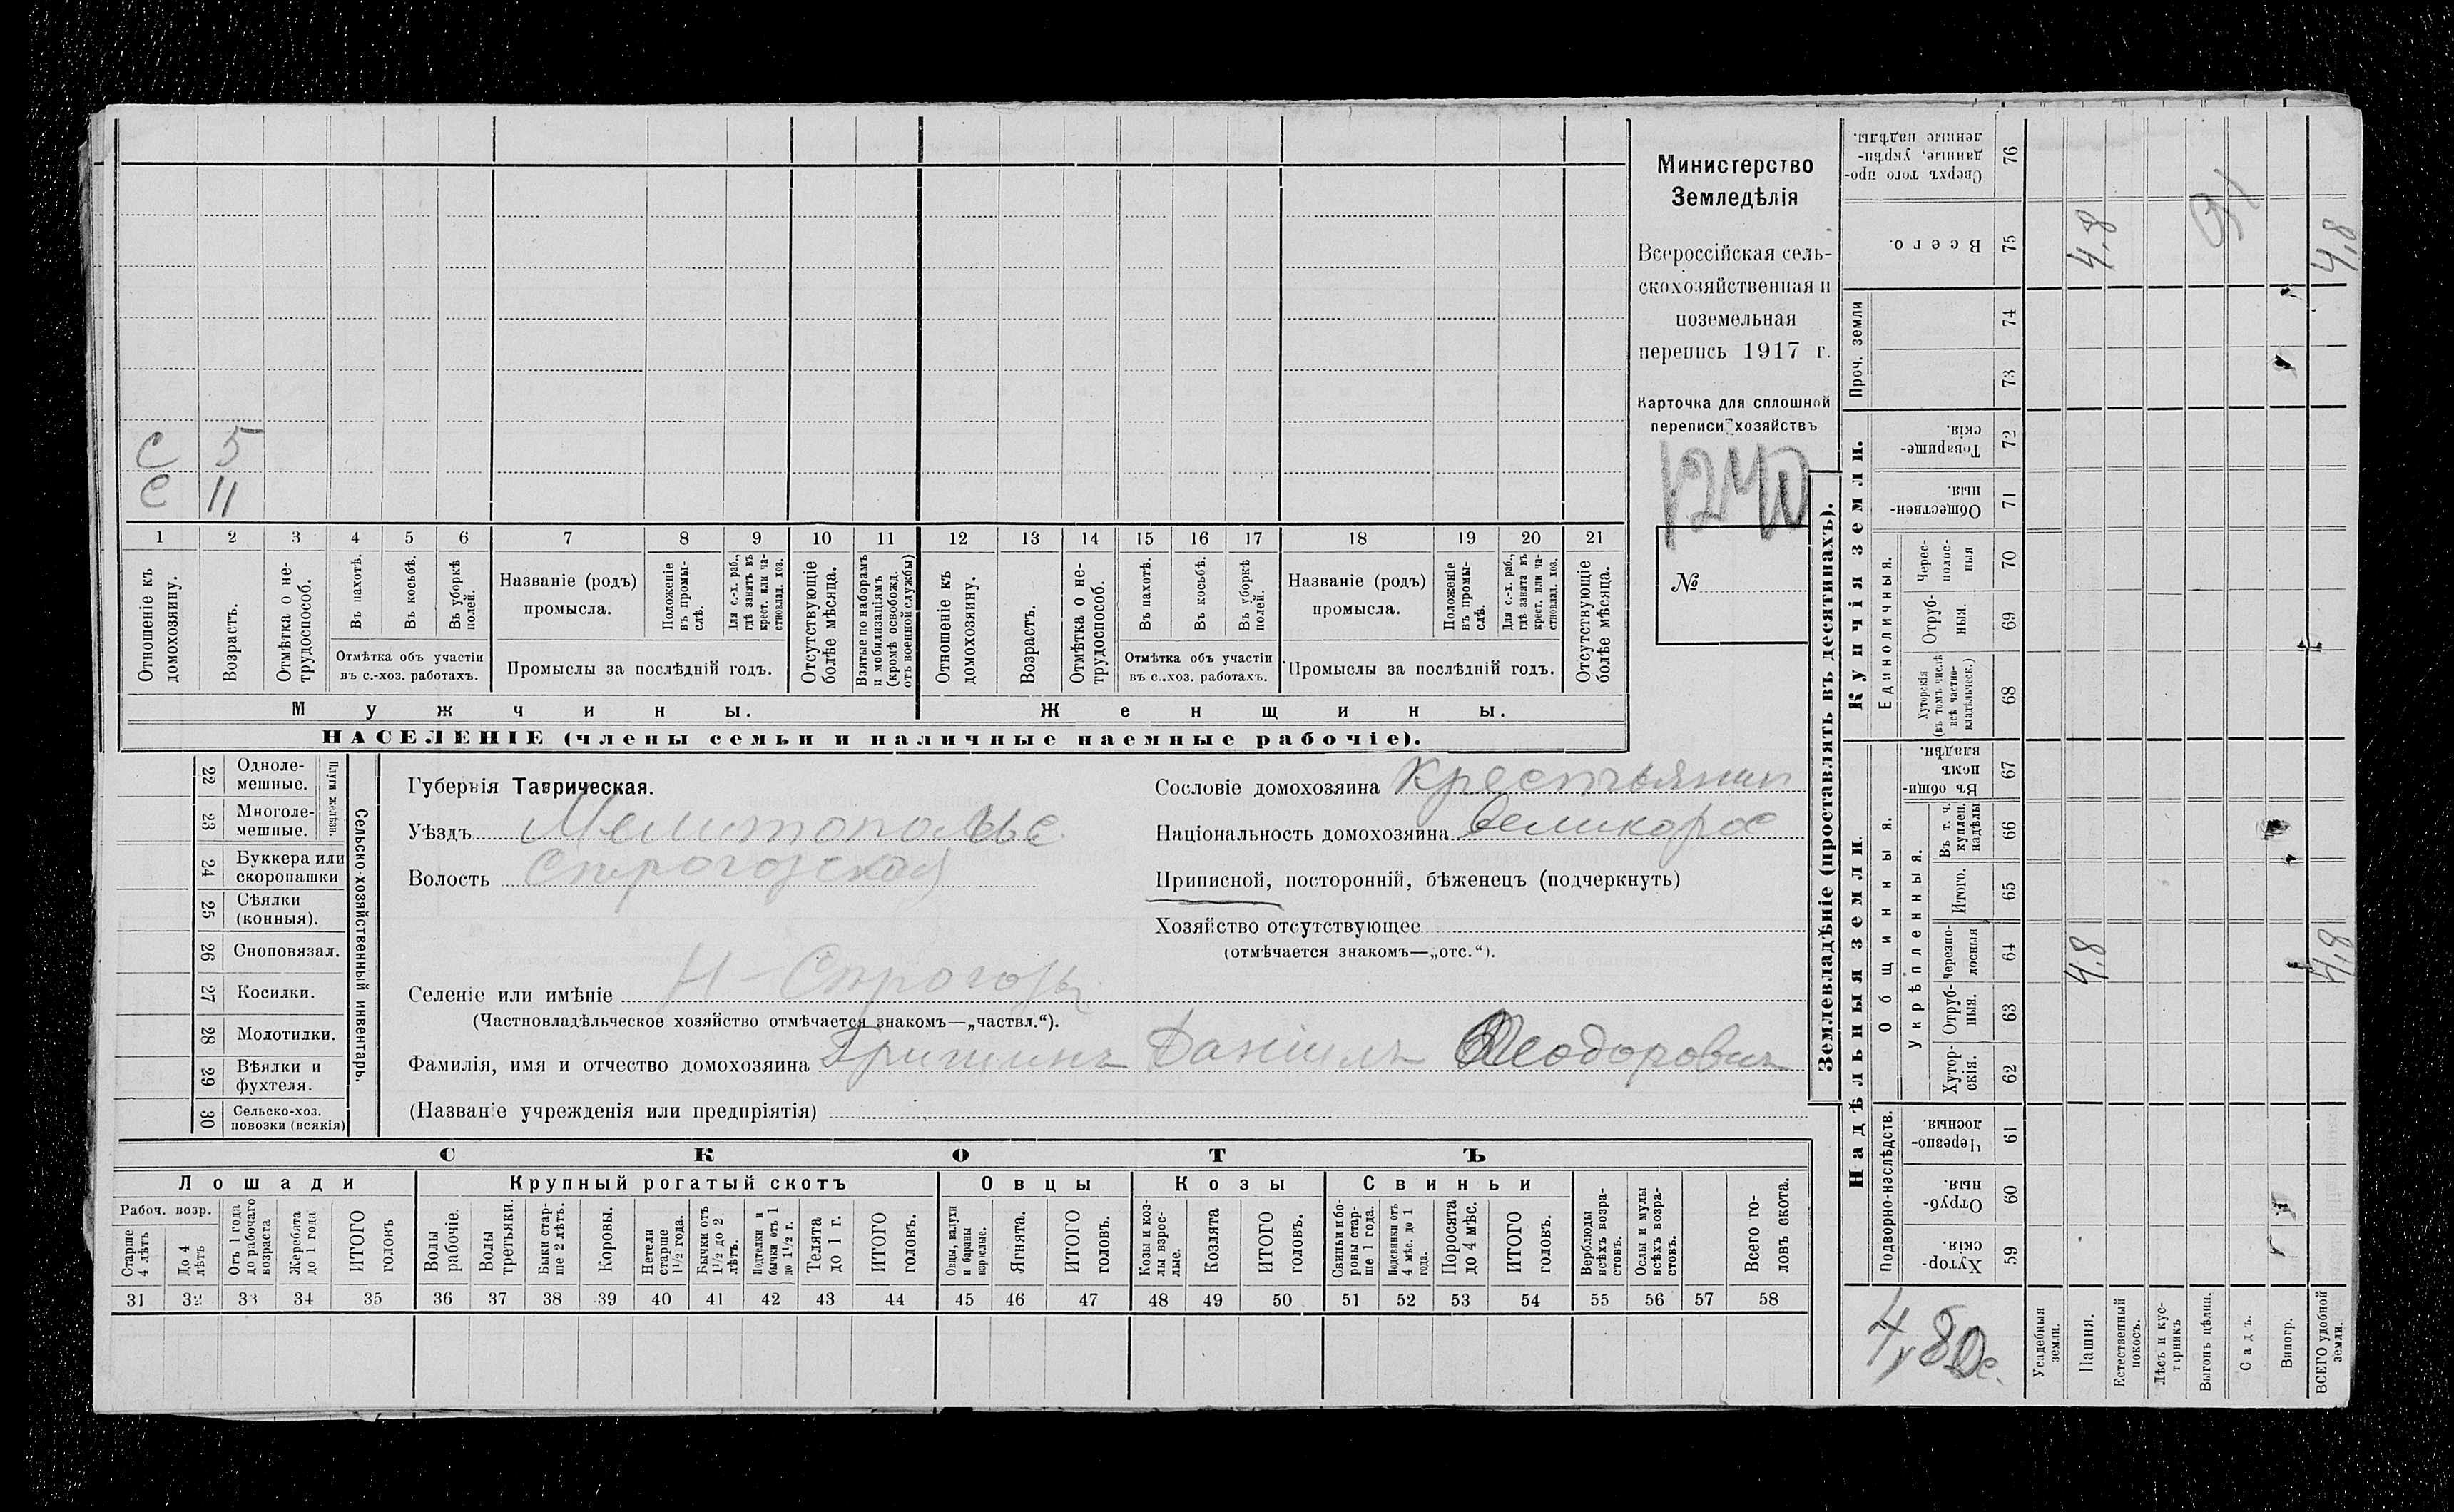 С 5
С 11
1 2 3 4 5 6 7 8 9 10 11 12 13 14 15 16 17 18 19 20 21
Отношеніе къ домохозяину.
Возрастъ.
Отмѣтка о не-
трудоспособ.
Въ пахотѣ.
Въ косьбѣ.
Въ уборкѣ полей.
Отмѣтка объ участіи
въ с.-хоз. работахъ.
Названіе (родъ)
промысла.
Положеніе
въ промы-
слѣ.
Для с.-х. раб.,
гдѣ занятъ въ
крест. или ча-
стновлад. хоз.
Промыслы за послѣдній годъ.
Отсутствующіе
болѣе мѣсяца.
Взятые по наборамъ
и мобилизаціямъ
(кромѣ освобожд.
отъ военной службы)
Отношеніе къ
домохозяину.
Возрастъ.
Отмѣтка о не-
трудоспособ.
Въ пахотѣ.
Въ косьбѣ.
Въ уборкѣ
полей.
Отмѣтка объ участіи
въ с..хоз. работахъ.
Названіе (родъ)
промысла.
Положеніе
въ промы-
слѣ.
Для с.-х. раб.,
гдѣ занята въ
крест. или ча-
стновлад. хоз.
Промыслы за послѣдній годъ.
Отсутствующіе
болѣе мѣсяца.
Мужчины.
Женщины.
НАСЕЛЕНІЕ (члены семьи и наличные наемные рабочіе).
Министерство
Земледѣлія
Всероссійская сель-
скохозяйственная и
поземельная
перепись 1917 г.
Карточка для сплошной
переписи хозяйствъ
№
22 Одноле-
мешные.
23 Многоле-
мешные.
Плуги желѣзн.
24 Буккера или
скоропашки
25 Сѣялки
(конныя).
26 Сноповязал.
27 Косилки.
28 Молотилки.
29 Вѣялки и
фухтеля.
30 Сельско-хоз.
повозки (всякія)
Сельско-хозяйственный инвентарь.
Губернія Таврическая.
Уѣздъ Мелитополье
Волость Строгозская
Селеніе или имѣніе Н-Строгозы
(Частновладѣльческое хозяйство отмѣчается знакомъ—„частвл.“).
Фамилія, имя и отчество домохозяина Гришинъ Даніилъ Феодоровичъ
(Названіе учрежденія или предпріятія)
Сословіе домохозяина крестьянин
Національность домохозяина великорос
Приписной, посторонній, бѣженецъ (подчеркнуть)
Хозяйство отсутствующее
(отмѣчается знакомъ—„отс.“).
СКОТЪ
Лошади
Крупный рогатый скотъ
Овцы
Козы
Свиньи
Рабоч. возр.
Старше
4 лѣтъ
До 4
лѣтъ
Отъ 1 года
до рабочаго
возраста
Жеребята
до 1 года
ИТОГО
головъ
Волы
рабочіе.
Волы
третьяки.
Быки стар-
ше 2 лѣтъ.
Коровы.
Нетели
старше
1½ года.
Бычки отъ
1½ до 2
лѣтъ.
Подтелки и
бычки отъ 1
до 1½ г.
Телята
до 1 г.
ИТОГО
головъ.
Овцы, валухи
и бараны
взрослые.
Ягнята.
ИТОГО
головъ.
Козы и коз-
лы взрос-
лые.
Козлята
ИТОГО
головъ.
Свиньи и бо-
ровы стар-
ше 1 года.
Подсвинки отъ
4 мѣс. до 1
года.
Поросята
до 4 мѣс.
ИТОГО
головъ.
Верблюды
всѣхъ возра-
стовъ.
Ослы и мулы
всѣхъ возра-
стовъ.
Всего го-
ловъ скота.
31 32 33 34 35 36 37 38 39 40 41 42 43 44 45 46 47 48 49 50 51 52 53 54 55 56 57 58
Землевладѣніе (проставлять въ десятинахъ).
Купчія земли.
Надѣльныя земли.
Проч. земли
Единоличныя.
Общинныя.
Укрѣпленныя.
Подворно-наслѣдств.
Сверхъ того про-
данные, укрѣп-
ленные надѣлы.
76
Всего.
75
74
73
Товарище-
скія.
72
Обществен-
ныя.
71
Черес-
полос-
ныя
70
Отруб-
ныя.
69
Хуторскія
(въ томъ числѣ
всѣ частно-
владѣльческ.)
68
Въ общин-
номъ
владѣн.
67
Въ т. ч.
куплен.
надѣлы
66
Итого.
65
Черезпо-
лосныя
64
Отруб-
ныя.
63
Хутор-
скія.
62
Черезпо-
лосныя.
61
Отруб-
ныя.
60
Хутор-
скія.
59
Усадебныя
земли.
Пашня.
Естественный
покосъ.
Лѣсъ и кус-
тарникъ
Выгонъ цѣлин.
Садъ.
Виногр.
ВСЕГО удобной
земли.
4,8
4,8
4,8
4,8